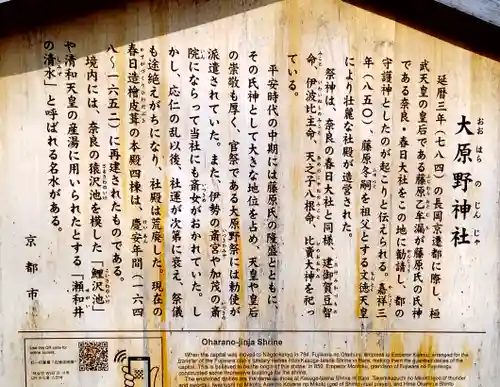 大原野神社
おおはらのじんじゃ
延暦三年（七八四）の長岡京遷都に際し、桓
武天皇の皇后である藤原乙牟漏が藤原氏の氏神
である奈良・春日大社をこの地に勧請し、都の
守護神としたのが起こりと伝えられる。嘉祥三
年（八五〇）、藤原冬嗣を祖父とする文徳天皇
により壮麗な社殿が造営された。
祭神は、奈良の春日大社と同様、建御賀豆智
命、伊波比主命、天之子八根命、比賣大神を祀っ
ている。
平安時代の中期には藤原氏の隆盛とともに
その氏神として大きな地位を占め、天皇や皇后
の崇敬も厚く、官祭である大原野祭には勅使が
派遣されていた。また、伊勢の斎宮や加茂の斎
院にならって当社にも斎女がおかれていた。し
かし、応仁の乱以後、社運が次第に衰え、祭儀
も途絶えがちになり、社殿は荒廃した。現在の
春日造檜皮葺の本殿四棟は、慶安年間（一六四
八～一六五二）に再建されたものである。
境内には、奈良の猿沢池を模した「鯉沢池」
や清和天皇の産湯に用いられたとする「瀬和井
の清水」と呼ばれる名水がある。
京都市
Oharano-jinja Shrine
When the capital was moved to Nagaoka-kyo in 784, Fujiwara no Otomuro, empress to Emperor Kammu, arranged for the